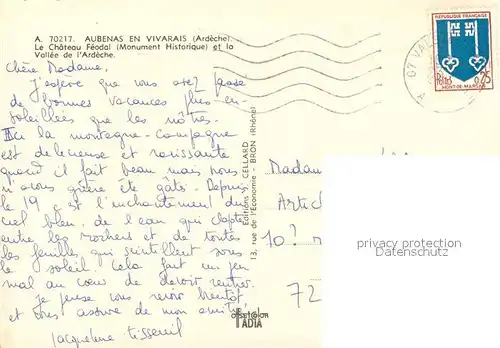 A. 70217. AUBENAS EN VIVARAIS (Ardèche).
Le Château Féodal (Monument Historique) et la
Vallée de l'Ardèche.
Chère Madame,
J'espère que vous avez passé
de bonnes vacances plus en-
soleillées que les nôtres.
Ici la montagne-campagne
est délicieuse et ravissante
quand il fait beau mais nous
n'avons guère été gâtés. Depuis
le 19 c'est l'enchantement du
ciel bleu, de l'eau qui clapote
entre les rochers et de toutes
les feuilles qui scintillent sous
le soleil. Cela fait un peu
mal au cœur de devoir rentrer.
Je pense vous revoir bientôt
et vous assure de mon amitié
Jacqueline Tisseuil
Editions "CELLARD"
13, rue de l'Economie - BRON (Rhône)
offset color
IADIA
REPUBLIQUE FRANÇAISE
POSTES 0,25
MONT-DE-MARSAN
07 VA
Madam
Artic
10?
72
privacy protection
Datenschutz